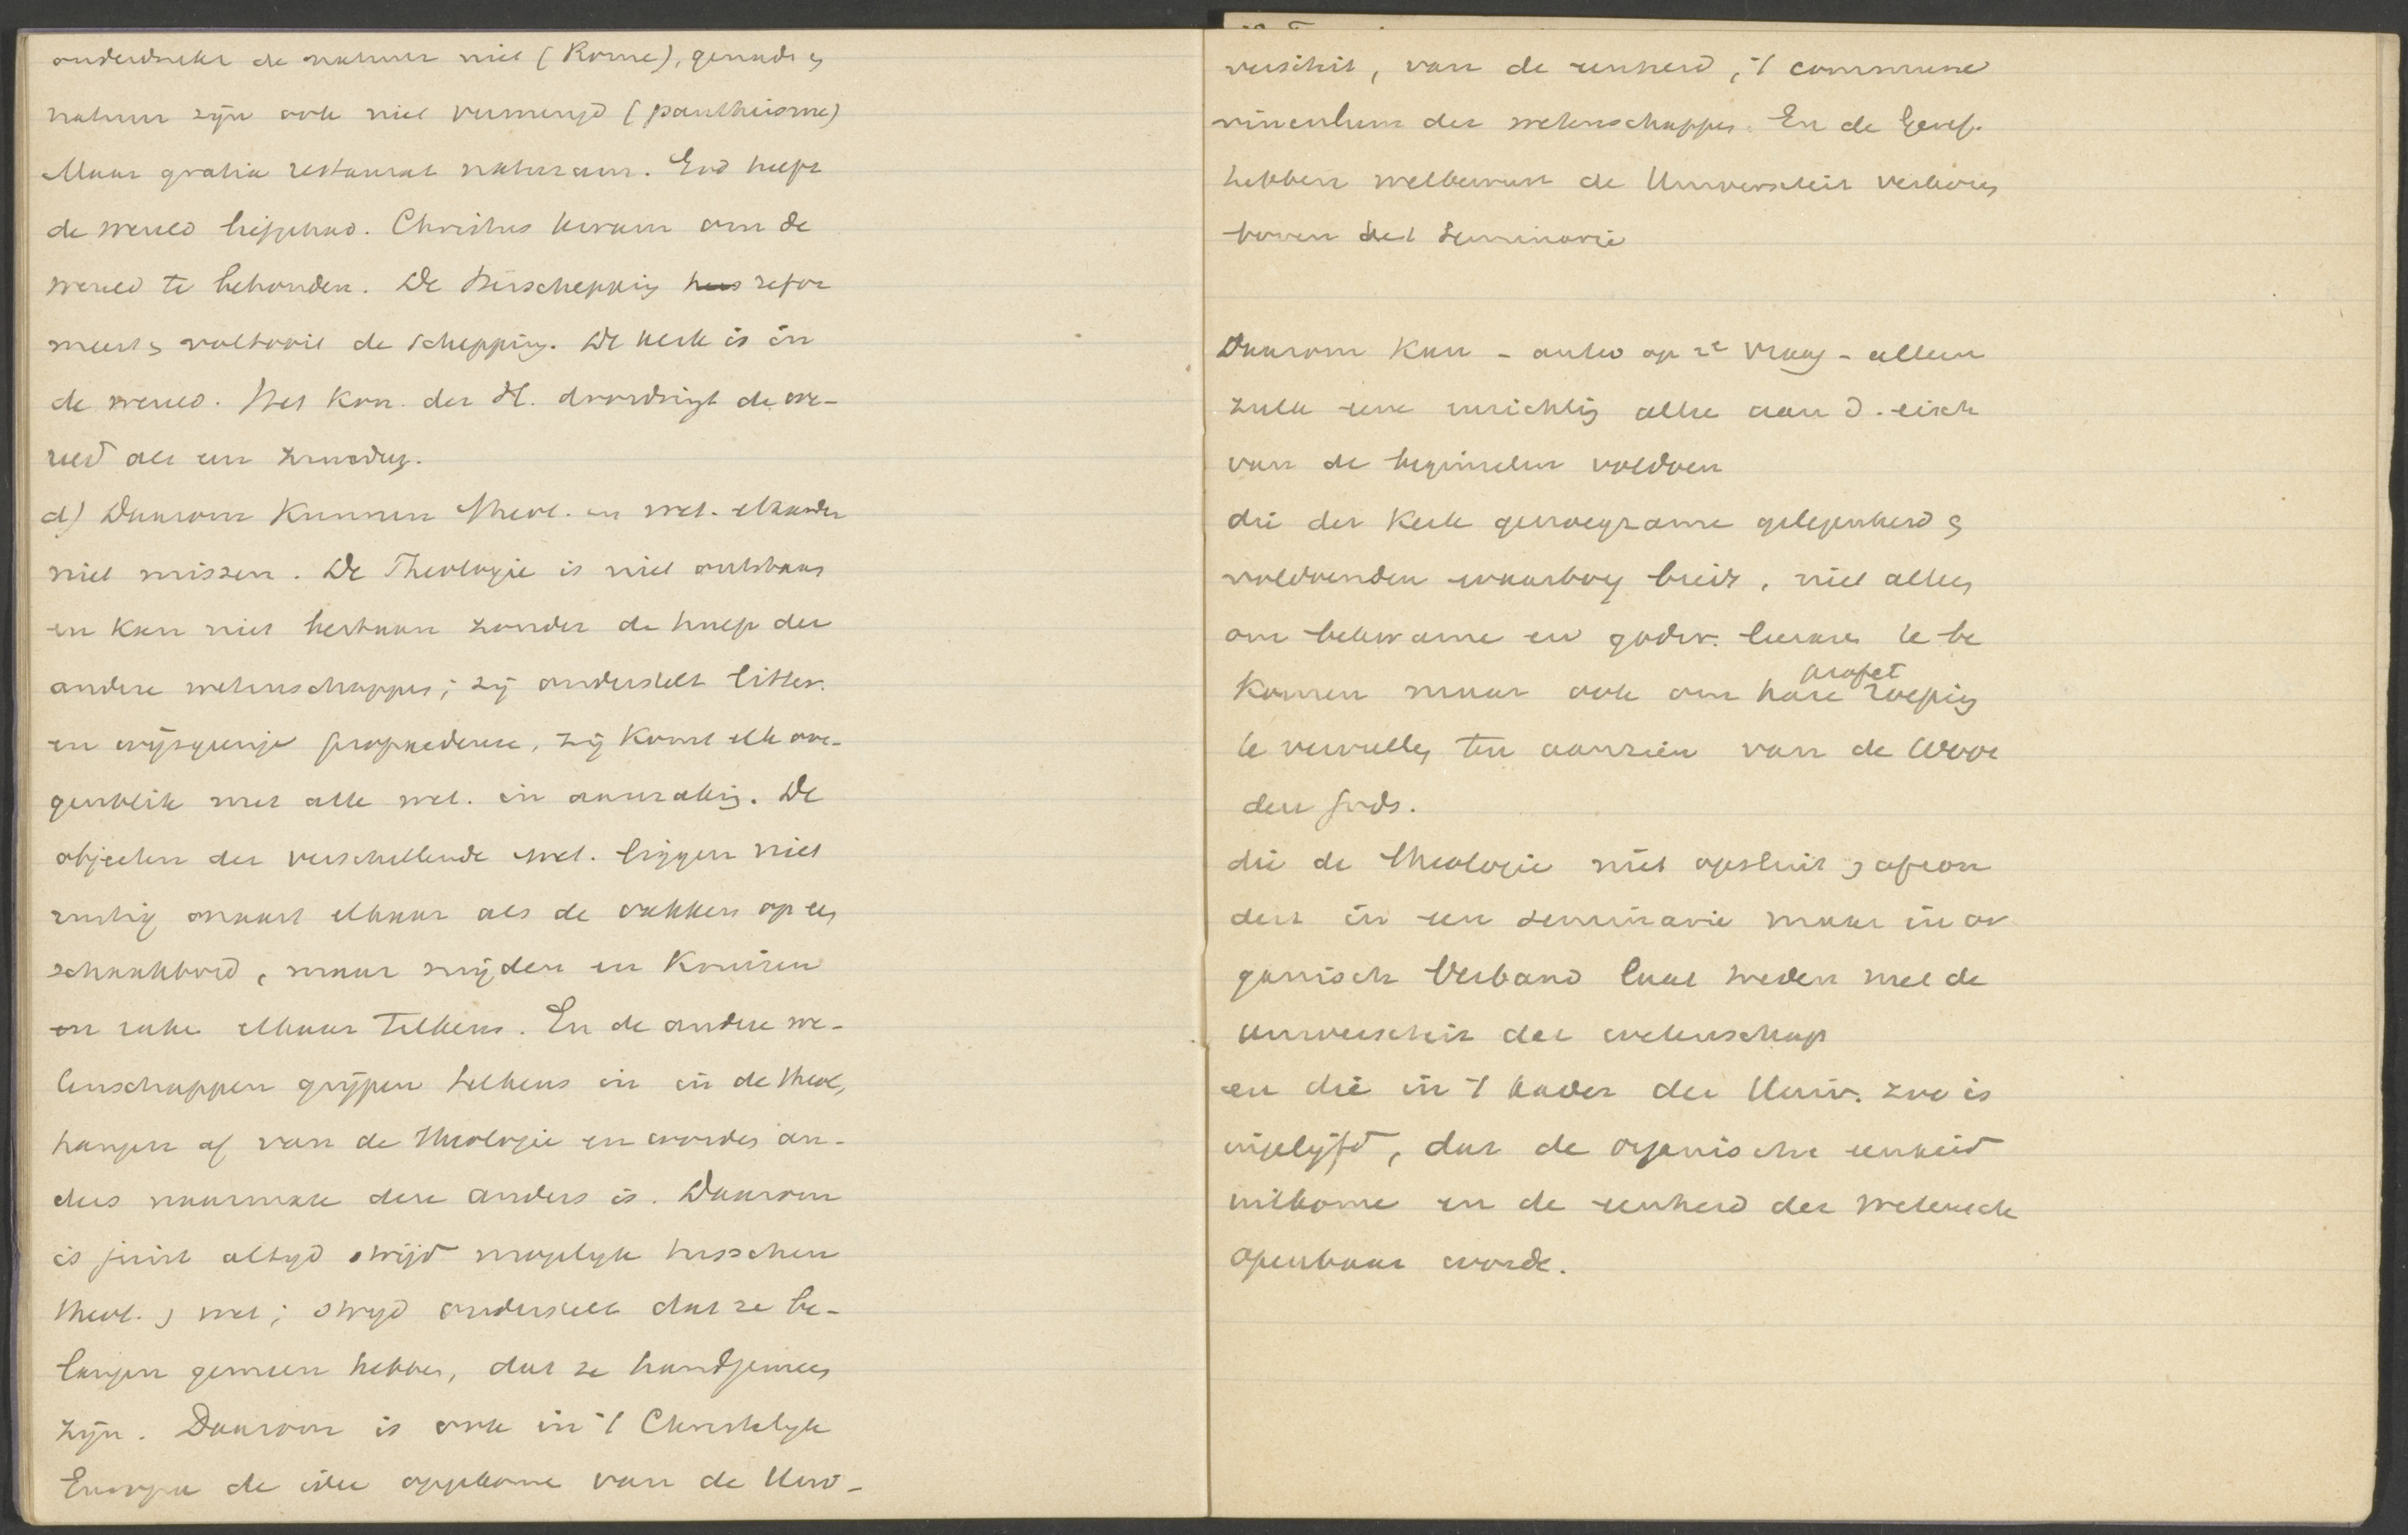 onderdrukt de natuur niet (Rome), genade en
natuur zijn ook niet vermengd (pantheisme)
Maar gratia restaurat naturam. God heeft
de wereld liefgehad. Christus kwam om de
wereld te behouden. De Herschepping refor
meert en voltooit de schepping. De kerk is in
de wereld. Het Kon. der H. doordringt de we-
reld als een zuurdeeg.
d) Daarom kunnen Theol. en wet. elkander
niet missen. De Theologie is niet ontstaan
en kan niet bestaan zonder de hulp der
andere wetenschappen; zij onderstelt litter.
en wijsgeerige propaedeuse, zij komt elk oo-
genblik met alle wet. in aanraking. De
objecten der verschillende wet. liggen niet
rustig naast elkaar als de vakken op een
schaakbord, maar snijden en kruisen
en raken elkaar telkens. En de andere we-
tenschappen grijpen telkens in in de theol,
hangen af van de theologie en worden an-
ders naarmate deze anders is. Daarom
is juist altijd strijd mogelijk tusschen
theol. en wet; strijd onderstelt dat ze be-
langen gemeen hebben, dat ze handgemeen
zijn. Daarom is ook in 't Christelijk
Europa de idee opgekomen van de Univ-
versiteit, van de eenheid, 't commune
vinculum der wetenschappen. En de Geref.
hebben welbewust de Universiteit verkoren
boven het Seminarie
Daarom kan - antw op 2e vraag - alleen
zulk eene inrichting alhier aan d. eisch
van de beginselen voldoen
die der Kerk genoegzame gelegenheid en
voldoenden waarborg biedt, niet alleen
om bekwame en godv. leeraren te be
komen maar ook om hare profet roeping
te vervullen ten aanzien van de Woor
den Gods.
die de theologie niet opsluit en afzon
dert in een seminarie maar in or
ganisch verband laat treden met de
universiteit der wetenschap
en die in 't kader der Univ. zoo is
ingelijfd, dat de organische eenheid
uitkome en de eenheid der wetensch
openbaar worde.